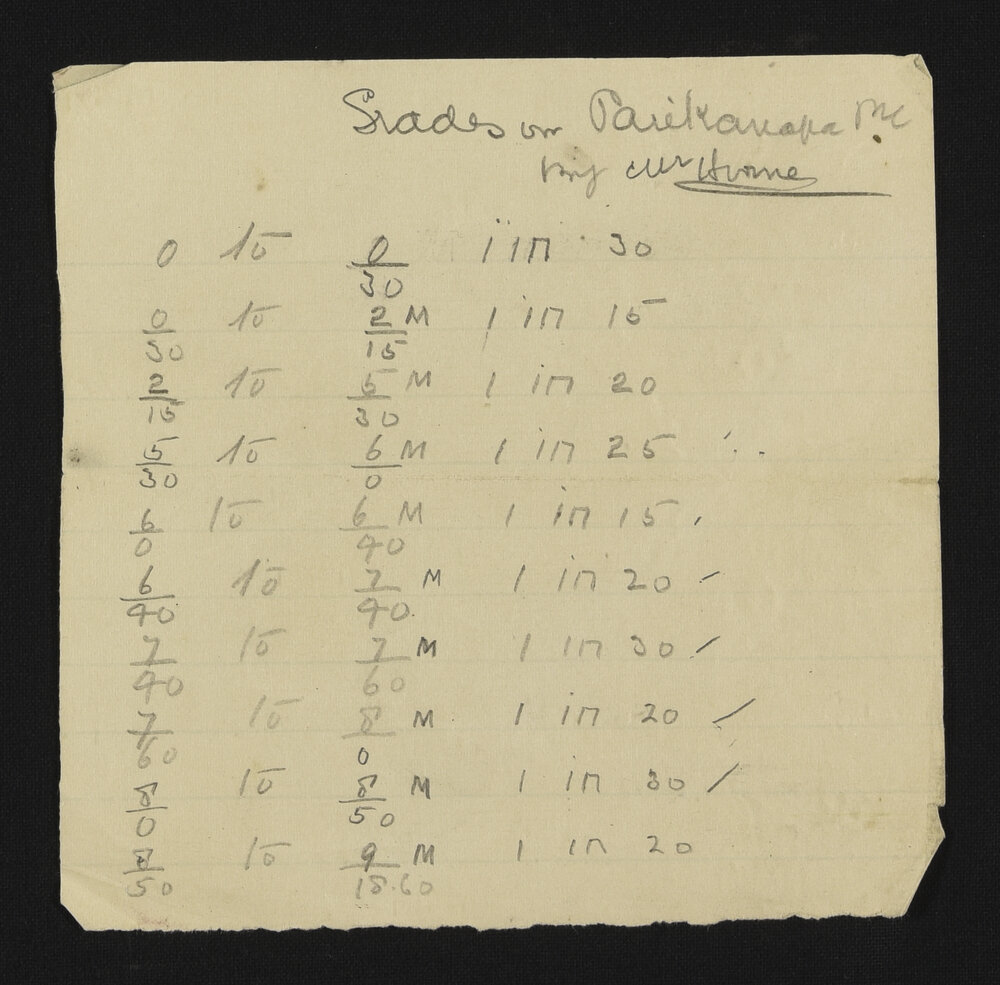 Grades on Parikanapa Rd
by Mr Horne
0 to 0/30 1 in 30
0/30 to 2/15 M 1 in 15
2/15 to 5/30 M 1 in 20
5/30 to 6/0 M 1 in 25
6/0 to 6/40 M 1 in 15
6/40 to 7/40 M 1 in 20
7/40 to 7/60 M 1 in 30
7/60 to 8/0 M 1 in 20
8/0 to 8/50 M 1 in 30
8/50 to 9/18.60 M 1 in 20